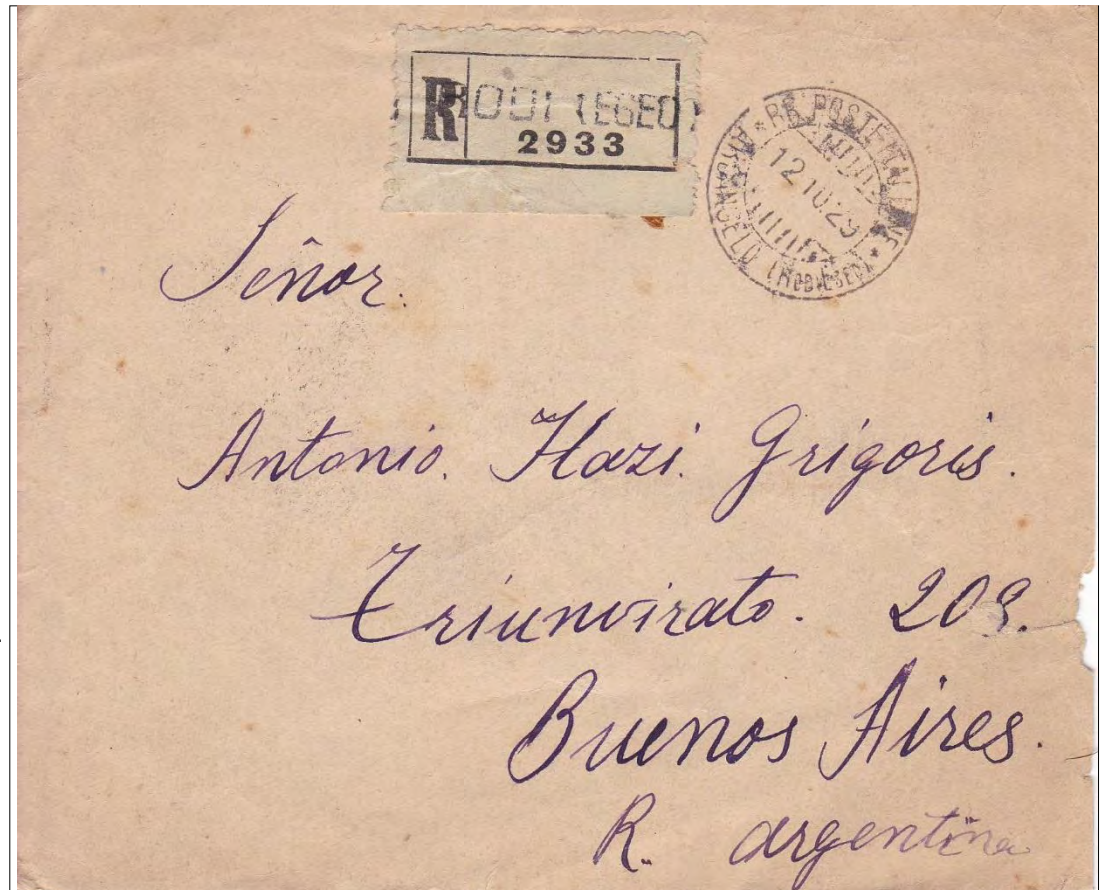 R RODI (EGEO)
2933
RR. POSTE ITALIANE
12.10.29
ARCANGELO (RODI EGEO)
Señor.
Antonio. Hazi. Grigoris.
Triunvirato. 209.
Buenos Aires.
R. argentina